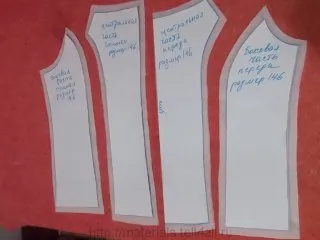 боковая
часть
спинки
размер
146
центральная
часть
спинки
размер 146
центральная
часть
переда
размер 146
Боковая
часть
переда
размер 146